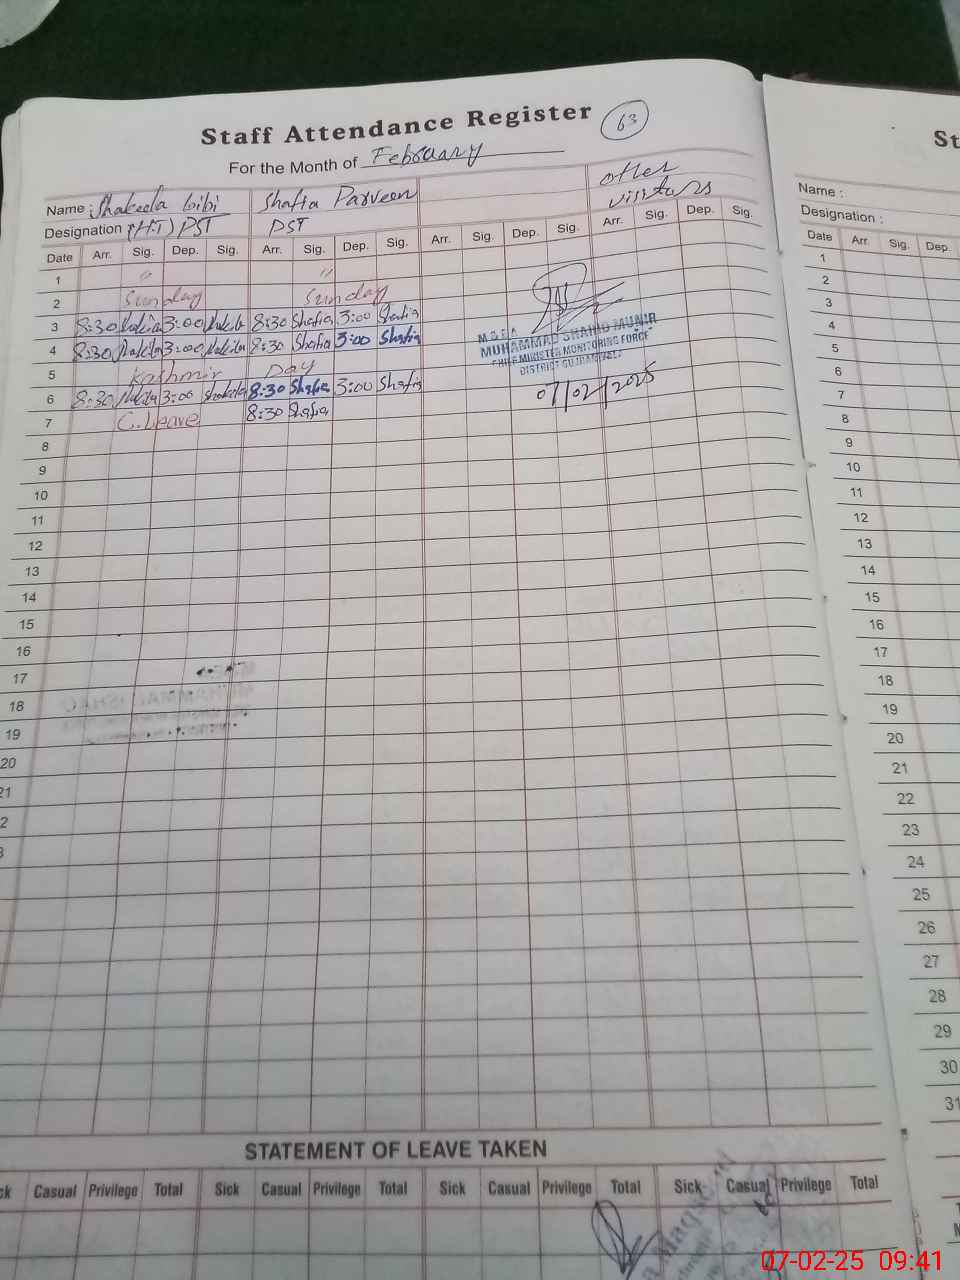 Staff Attendance Register 63
For the Month of February
St
Name : Shakeela bibi Shafia Parveen other visitors
Designation (H.T) PST PST
Name :
Designation :
Date Arr. Sig. Dep. Sig. Arr. Sig. Dep. Sig. Arr. Sig. Dep. Sig. Arr. Sig. Dep. Sig.
Date Arr. Sig. Dep.
1 " "
2 Sunday Sunday
3 8:30 3:00 8:30 Shafia 3:00 Shafia
4 8:30 3:00 8:30 Shafia 3:00 Shafia
5 Kashmir Day
6 8:30 3:00 Shakeela 8:30 Shafia 3:00 Shafia
7 C.Leave 8:30 Shafia
M & E A
MUHAMMAD SHAHID MUNIR
CHIEF MINISTER MONITORING FORCE
DISTRICT GUJRANWALA
07/02/2025
8
9
10
11
12
13
14
15
16
17
18
19
20
21
2
3
1
2
3
4
5
6
7
8
9
10
11
12
13
14
15
16
17
18
19
20
21
22
23
24
25
26
27
28
29
30
31
STATEMENT OF LEAVE TAKEN
ck Casual Privilege Total Sick Casual Privilege Total Sick Casual Privilege Total Sick Casual Privilege Total
07-02-25 09:41